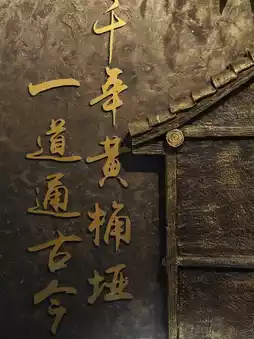 千年黄桷垭
一道通古今